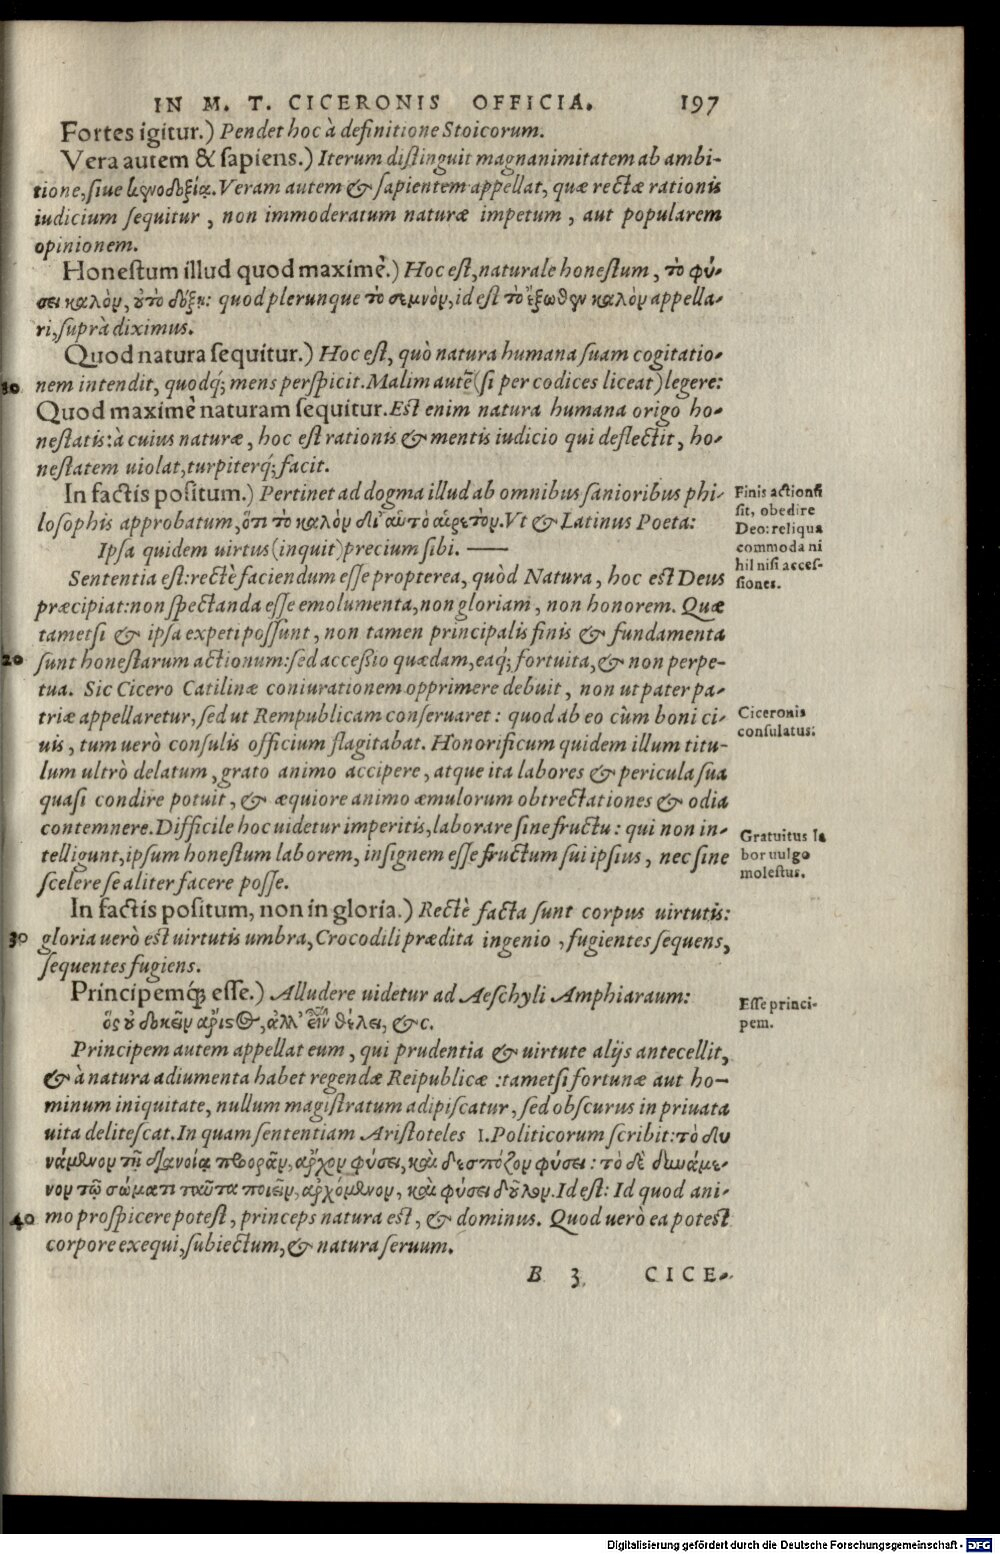 IN M. T. CICERONIS OFFICIA. 197
Fortes igitur.) Pendet hoc à definitione Stoicorum.
Vera autem & sapiens.) Iterum distinguit magnanimitatem ab ambi-
tione, siue κενοδοξίᾳ. Veram autem & sapientem appellat, quæ rectæ rationis
iudicium sequitur, non immoderatum naturæ impetum, aut popularem
opinionem.
Honestum illud quod maximè.) Hoc est, naturale honestum, τὸ φύ-
σει καλὸν, ὀ τὸ δόξῃ: quod plerunque τὸ σεμνὸν, id est τὸ ἔξωθεν καλὸν appella-
ri, suprà diximus.
Quod natura sequitur.) Hoc est, quò natura humana suam cogitatio-
10 nem intendit, quodq́; mens perspicit. Malim autē (si per codices liceat) legere:
Quod maximè naturam sequitur. Est enim natura humana origo ho-
nestatis: à cuius naturæ, hoc est rationis & mentis iudicio qui deflectit, ho-
nestatem uiolat, turpiterq́; facit.
In factis positum.) Pertinet ad dogma illud ab omnibus sanioribus phi-
losophis approbatum, ὅτι τὸ καλὸν δι' αὑτὸ αἱρετόν. Vt & Latinus Poeta:
Ipsa quidem uirtus (inquit) precium sibi. ——
Sententia est: rectè faciendum esse propterea, quòd Natura, hoc est Deus
præcipiat: non spectanda esse emolumenta, non gloriam, non honorem. Quæ
tametsi & ipsa expeti possunt, non tamen principalis finis & fundamenta
20 sunt honestarum actionum: sed accessio quædam, eaq́; fortuita, & non perpe-
tua. Sic Cicero Catilinæ coniurationem opprimere debuit, non ut pater pa-
triæ appellaretur, sed ut Rempublicam conseruaret: quod ab eo cùm boni ci-
uis, tum uerò consulis officium flagitabat. Honorificum quidem illum titu-
lum ultrò delatum, grato animo accipere, atque ita labores & pericula sua
quasi condire potuit, & æquiore animo æmulorum obtrectationes & odia
contemnere. Difficile hoc uidetur imperitis, laborare sine fructu: qui non in-
telligunt, ipsum honestum laborem, insignem esse fructum sui ipsius, nec sine
scelere se aliter facere posse.
In factis positum, non in gloria.) Rectè facta sunt corpus uirtutis:
30 gloria uerò est uirtutis umbra, Crocodili prædita ingenio, fugientes sequens,
sequentes fugiens.
Principemq́; esse.) Alludere uidetur ad Aeschyli Amphiaraum:
ὃς ὀ δοκεῖν ἄριστος, ἀλλ' εἶν θέλει, &c.
Principem autem appellat eum, qui prudentia & uirtute alijs antecellit,
& à natura adiumenta habet regendæ Reipublicæ: tametsi fortunæ aut ho-
minum iniquitate, nullum magistratum adipiscatur, sed obscurus in priuata
uita delitescat. In quam sententiam Aristoteles 1. Politicorum scribit: τὸ δυ
νάμενον τῇ διανοίᾳ προορᾶν, ἄρχον φύσει, καὶ δεσπόζον φύσει: τὸ δὲ δυνάμε-
νον τῷ σώματι ταῦτα ποιεῖν, ἀρχόμενον, καὶ φύσει δοῦλον. Id est: Id quod ani-
40 mo prospicere potest, princeps natura est, & dominus. Quod uerò ea potest
corpore exequi, subiectum, & natura seruum.
B 3 CICE-
Finis actionū
sit, obedire
Deo: reliqua
commoda ni
hil nisi acces-
siones.
Ciceronis
consulatus.
Gratuitus la
bor uulgo
molestus.
Esse princi-
pem.
Digitalisierung gefördert durch die Deutsche Forschungsgemeinschaft - DFG